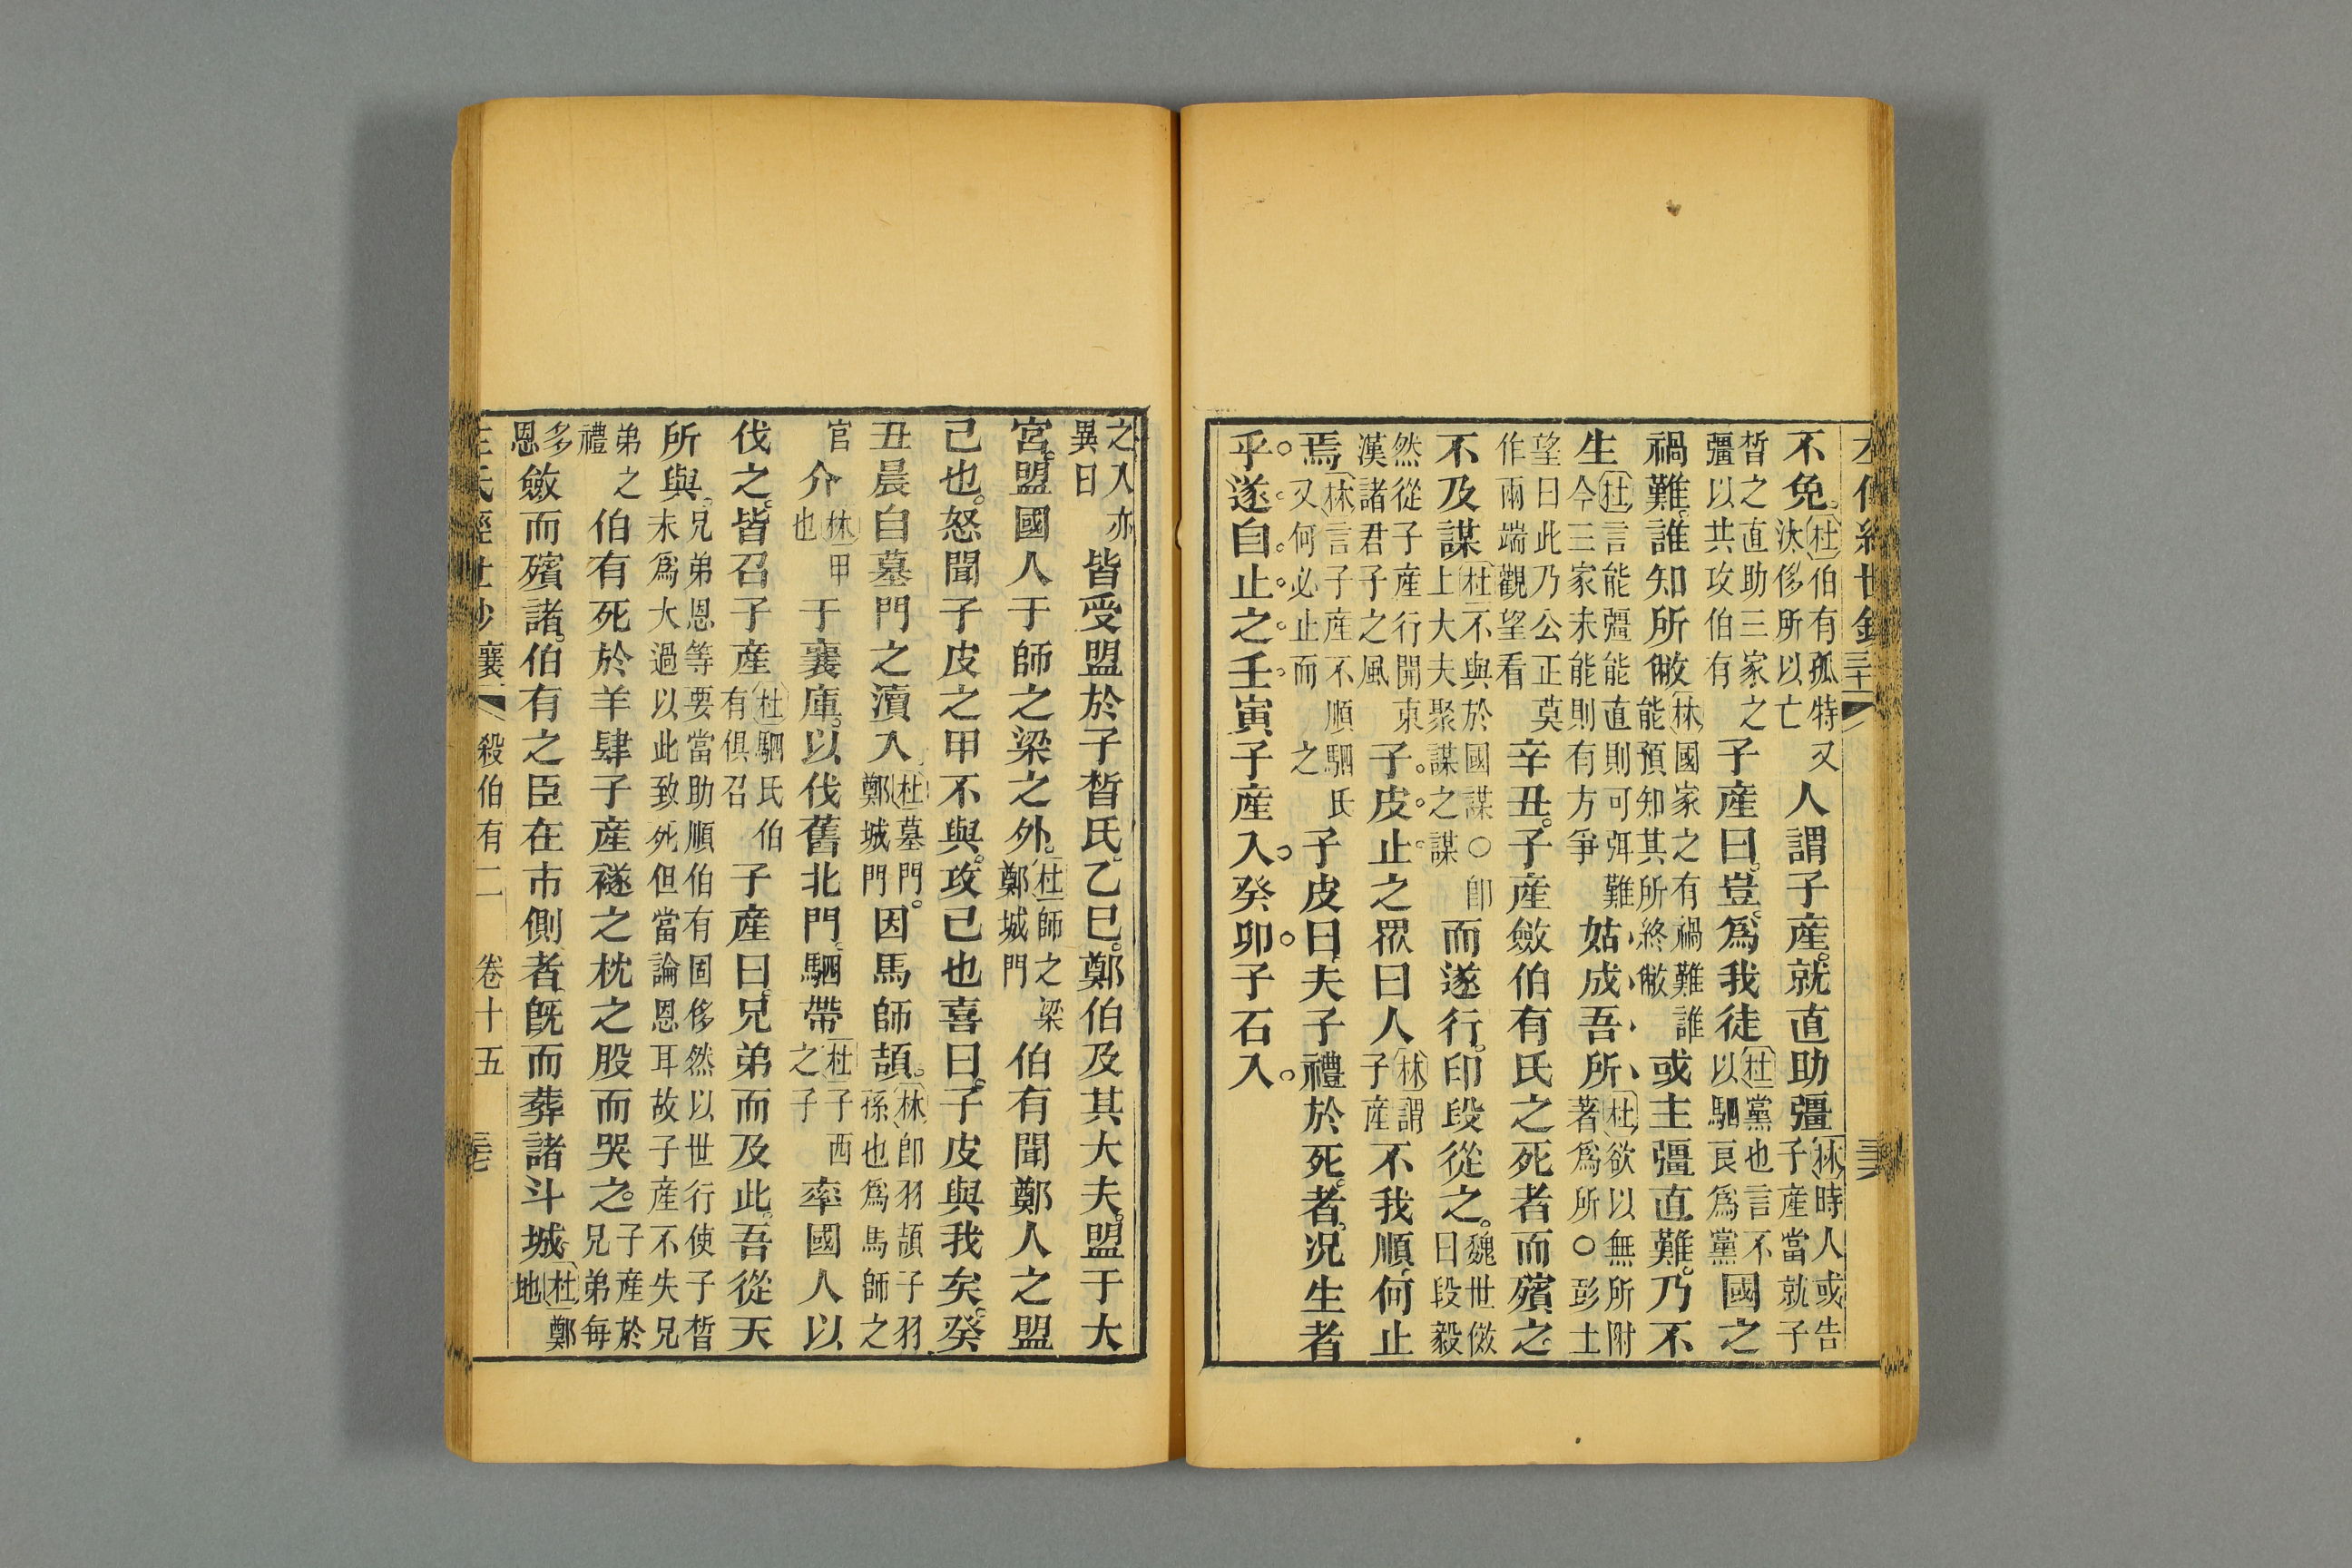 左傳經世鈔
不免。杜伯有孤特又汰侈所以亡人謂子產。就直助彊林時人或告子產當就子
晳之直助三家之彊以共攻伯有子產曰。豈爲我徒杜黨也言不以駟良爲黨國之
禍難。誰知所敝林國家之有禍難誰能預知其所終敝或主彊直難。乃不
生杜言能彊能直則可弭難今三家未能則有方爭姑成吾所杜欲以無所附著爲所○彭士
望曰此乃公正莫作兩端觀望看辛丑。子產斂伯有氏之死者而殯之。
不及謀杜不與於國謀○卽上大夫聚謀之謀而遂行。印段從之。魏世傚曰段毅
然從子產行開東漢諸君子之風子皮止之眾曰人林謂子產不我順。何止
焉林言子產不順駟氏又何必止而之子皮曰。夫子禮於死者。况生者
乎。遂自止之。壬寅子產入。癸卯。子石入。
之入亦異日皆受盟於子晳氏。乙巳。鄭伯及其大夫。盟于大
宮。盟國人于師之梁之外。杜師之梁鄭城門伯有聞鄭人之盟
己也。怒聞子皮之甲不與。攻己也喜曰。子皮與我矣。癸
丑晨自墓門之瀆入杜墓門鄭城門。因馬師頡。林卽羽頡子羽孫也爲馬師之
官介林甲也于襄庫。以伐舊北門。駟帶杜子西之子率國人以
伐之。皆召子產杜駟氏伯有俱召子產曰。兄弟而及此。吾從天
所與。兄弟恩等要當助順伯有固侈然以世行使子晳未爲大過以此致死但當論恩耳故子產不失兄
弟之禮伯有死於羊肆子產襚之枕之股而哭之。子產於兄弟每
多恩斂而殯諸。伯有之臣在市側者。旣而葬諸斗城。杜鄭地
左氏經世鈔 襄 殺伯有二 卷十五